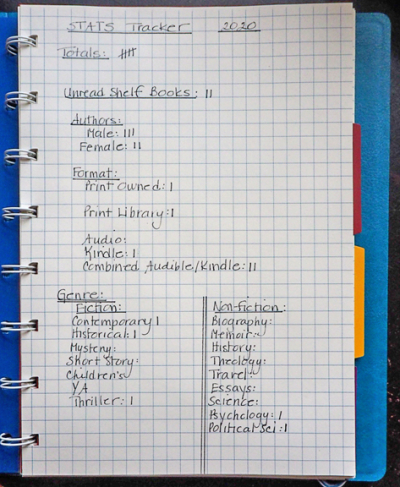 STATS Tracker 2020
Totals: 卌
Unread Shelf Books: ||
Authors:
Male: |||
Female: ||
Format:
Print Owned: |
Print Library: |
Audio:
Kindle: |
Combined Audible/Kindle: ||
Genre:
Fiction:
Contemporary |
Historical: |
Mystery:
Short Story:
Children's
YA
Thriller: |
Non-Fiction:
Biography:
Memoir:
History:
Theology:
Travel:
Essays:
Science:
Psychology: |
Political Sci: |